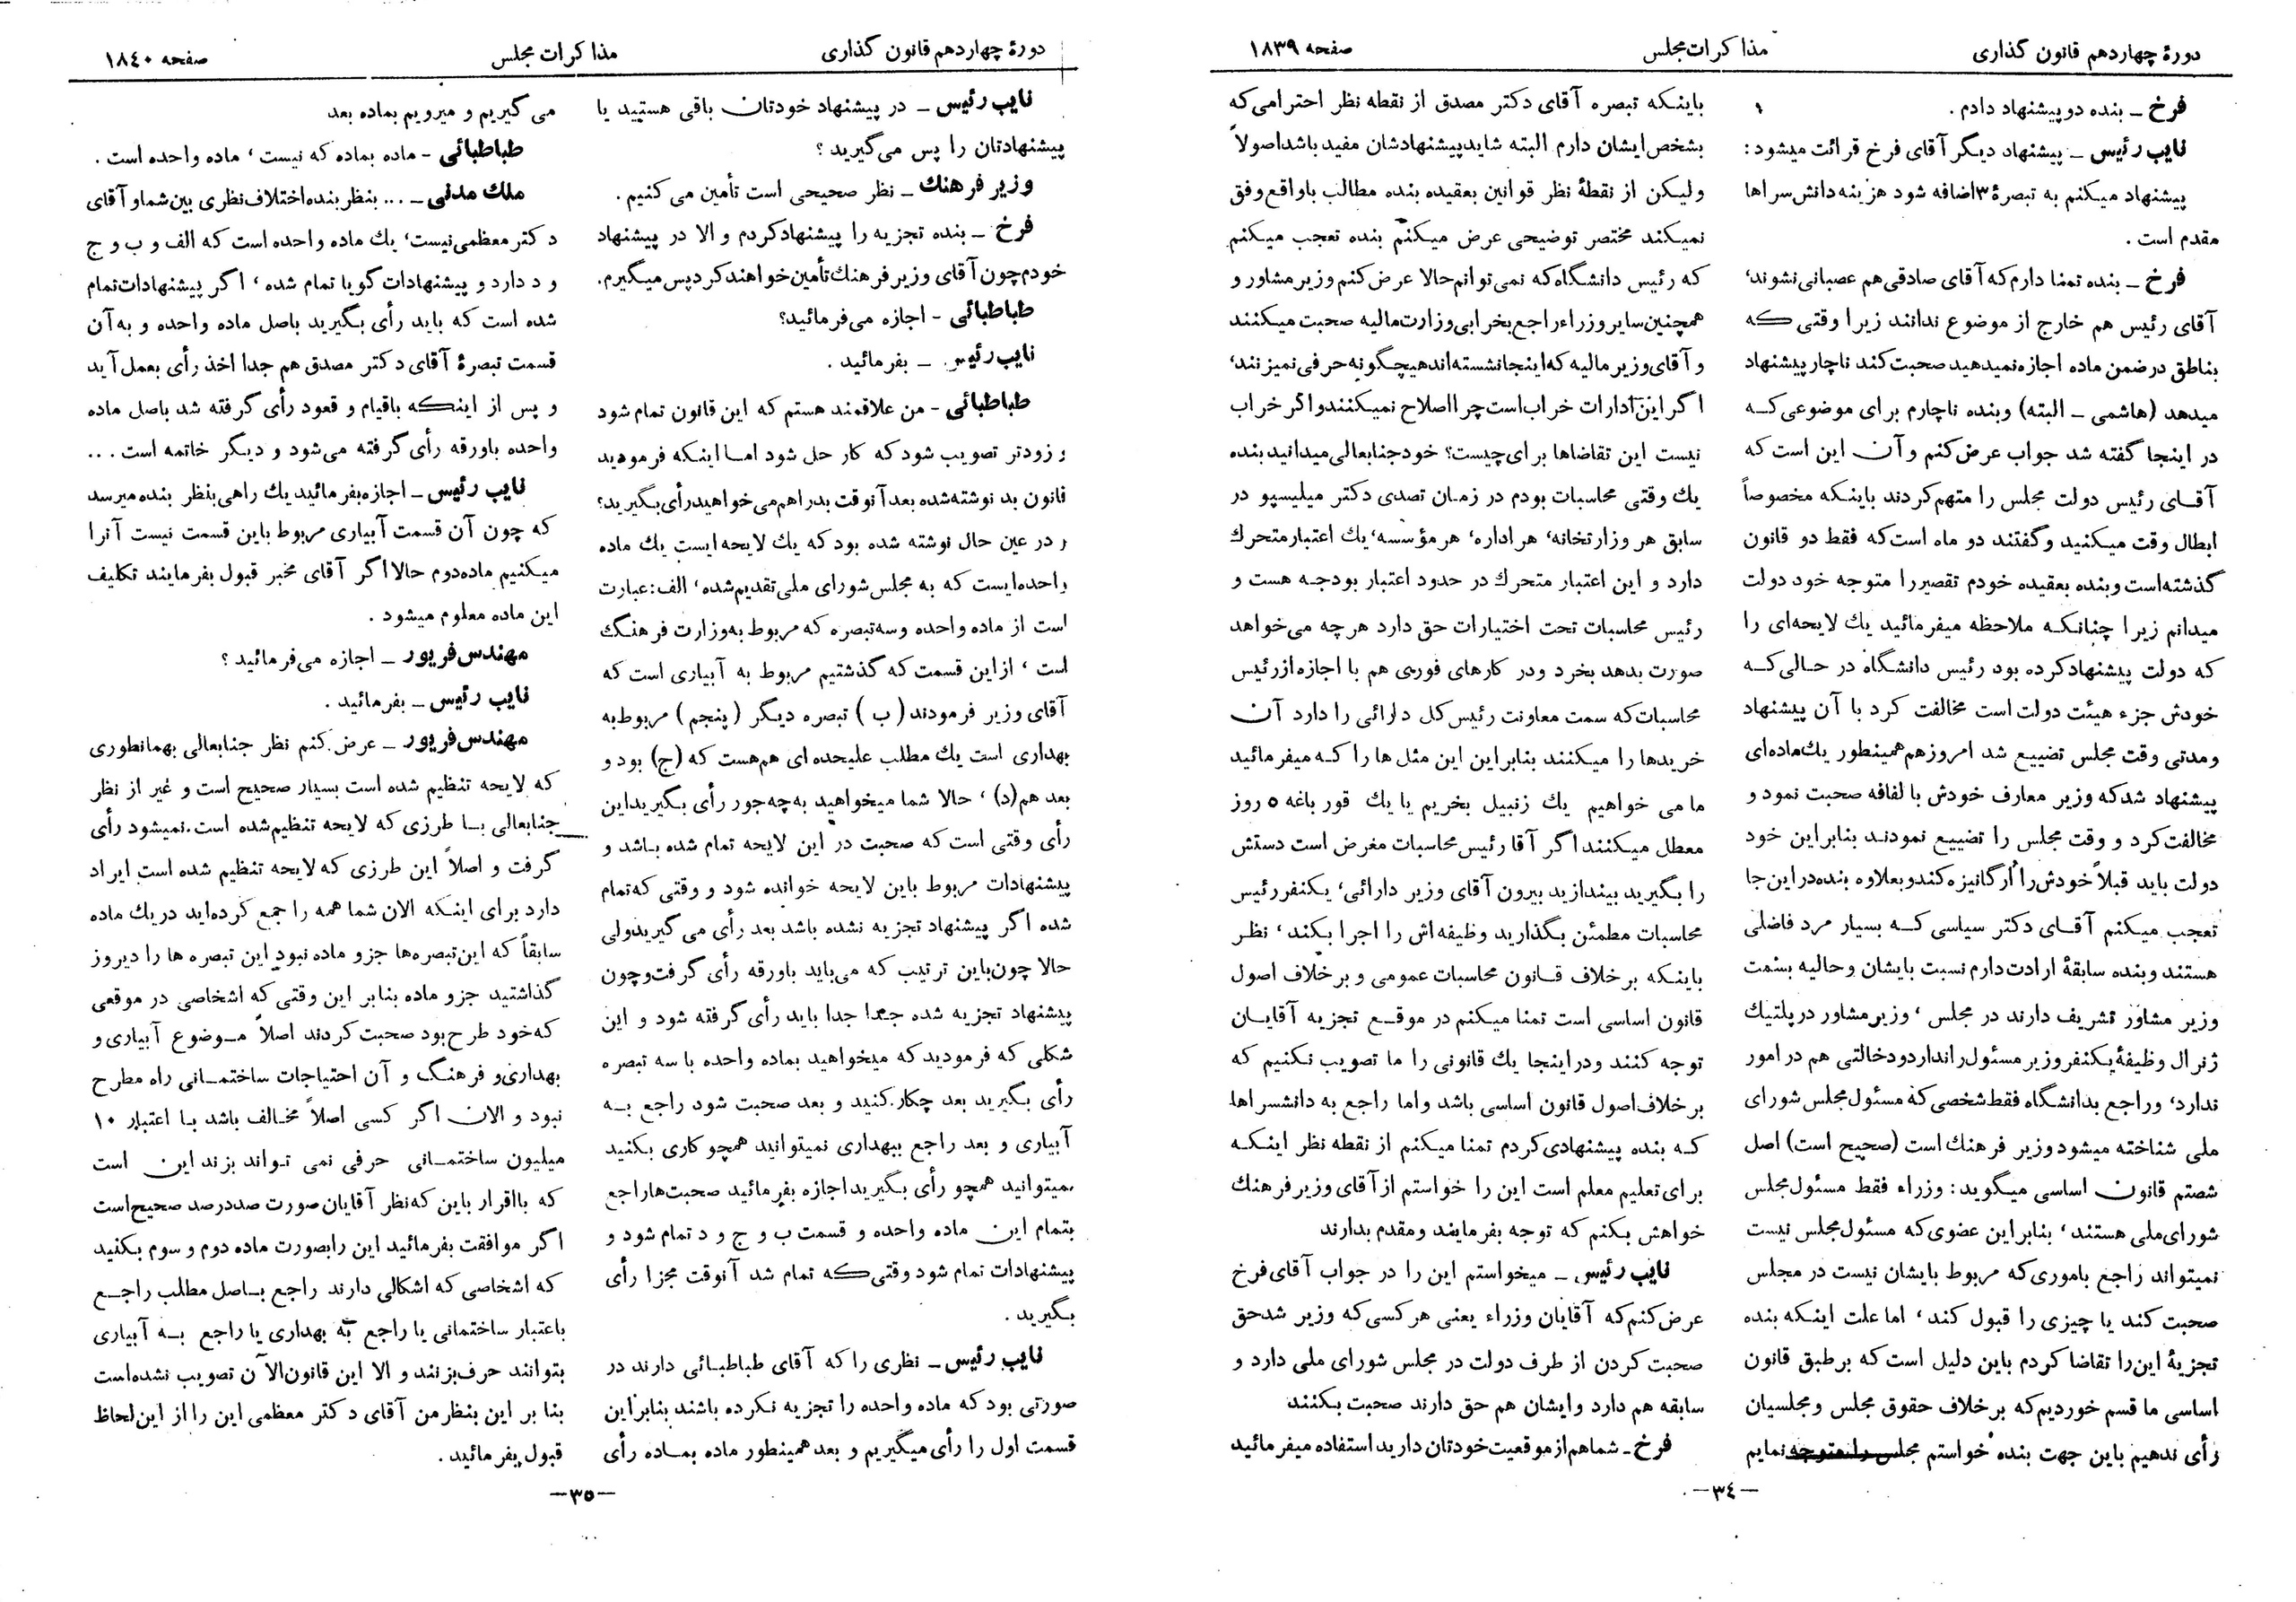 دورهٔ چهاردهم قانون گذاری
مذاکرات مجلس
صفحه ۱۸۳۹
فرخ ـ بنده دو پیشنهاد دادم .
نایب رئیس ـ پیشنهاد دیگر آقای فرخ قرائت میشود :
پیشنهاد میکنم به تبصرهٔ ۳ اضافه شود هزینه دانش سراها
مقدم است .
فرخ ـ بنده تمنا دارم که آقای صادقی هم عصبانی نشوند،
آقای رئیس هم خارج از موضوع ندانند زیرا وقتی که
بناطق در ضمن ماده اجازه نمیدهید صحبت کند ناچار پیشنهاد
میدهد (هاشمی ـ البته) و بنده ناچارم برای موضوعی که
در اینجا گفته شد جواب عرض کنم و آن این است که
آقای رئیس دولت مجلس را متهم کردند باینکه مخصوصاً
ابطال وقت میکنید و گفتند دو ماه است که فقط دو قانون
گذشته است و بنده بعقیده خودم تقصیر را متوجه خود دولت
میدانم زیرا چنانکه ملاحظه میفرمائید یك لایحه‌ای را
که دولت پیشنهاد کرده بود رئیس دانشگاه در حالی که
خودش جزء هیئت دولت است مخالفت کرد با آن پیشنهاد
و مدتی وقت مجلس تضییع شد امروز هم همینطور یك ماده‌ای
پیشنهاد شد که وزیر معارف خودش با لفافه صحبت نمود و
مخالفت کرد و وقت مجلس را تضییع نمودند بنابراین خود
دولت باید قبلاً خودش را ارگانیزه کند و بعلاوه بنده در این جا
تعجب میکنم آقای دکتر سیاسی که بسیار مرد فاضلی
هستند و بنده سابقهٔ ارادت دارم نسبت بایشان و حالیه بسمت
وزیر مشاور تشریف دارند در مجلس ، وزیر مشاور در پلتیك
ژنرال وظیفهٔ یکنفر وزیر مسئول را ندارد و دخالتی هم در امور
ندارد، و راجع بدانشگاه فقط شخصی که مسئول مجلس شورای
ملی شناخته میشود وزیر فرهنك است (صحیح است) اصل
شصتم قانون اساسی میگوید : وزراء فقط مسئول مجلس
شورای ملی هستند ، بنابراین عضوی که مسئول مجلس نیست
نمیتواند راجع باموری که مربوط بایشان نیست در مجلس
صحبت کند یا چیزی را قبول کند ، اما علت اینکه بنده
تجزیهٔ این را تقاضا کردم باین دلیل است که بر طبق قانون
اساسی ما قسم خوردیم که بر خلاف حقوق مجلس و مجلسیان
رأی ندهیم باین جهت بنده خواستم مجلس را متوجه نمایم
باینکه تبصره آقای دکتر مصدق از نقطه نظر احترامی که
بشخص ایشان دارم البته شاید پیشنهادشان مفید باشد اصولاً
ولیکن از نقطهٔ نظر قوانین بعقیده بنده مطالب با واقع وفق
نمیکند مختصر توضیحی عرض میکنم بنده تعجب میکنم
که رئیس دانشگاه که نمی توانم حالا عرض کنم وزیر مشاور و
همچنین سایر وزراء راجع بخرابی وزارت مالیه صحبت میکنند
و آقای وزیر مالیه که اینجا نشسته‌اند هیچگونه حرفی نمیزنند،
اگر این ادارات خراب است چرا اصلاح نمیکنند و اگر خراب
نیست این تقاضاها برای چیست؟ خود جنابعالی میدانید بنده
یك وقتی محاسبات بودم در زمان تصدی دکتر میلیسپو در
سابق هر وزارتخانه، هر اداره، هر مؤسسه، یك اعتبار متحرك
دارد و این اعتبار متحرك در حدود اعتبار بودجه هست و
رئیس محاسبات تحت اختیارات حق دارد هر چه می‌خواهد
صورت بدهد بخرد و در کارهای فوری هم با اجازه از رئیس
محاسبات که سمت معاونت رئیس کل دارائی را دارد آن
خریدها را میکنند بنابراین این مثل ها را که میفرمائید
ما می خواهیم یك زنبیل بخریم یا یك قورباغه ۵ روز
معطل میکنند اگر آقا رئیس محاسبات مغرض است دستش
را بگیرید بیندازید بیرون آقای وزیر دارائی، یکنفر رئیس
محاسبات مطمئن بگذارید وظیفه‌اش را اجرا بکند ، نظر
باینکه بر خلاف قانون محاسبات عمومی و بر خلاف اصول
قانون اساسی است تمنا میکنم در موقع تجزیه آقایان
توجه کنند و در اینجا یك قانونی را ما تصویب نکنیم که
بر خلاف اصول قانون اساسی باشد و اما راجع به دانشسراها
که بنده پیشنهادی کردم تمنا میکنم از نقطه نظر اینکه
برای تعلیم معلم است این را خواستم از آقای وزیر فرهنك
خواهش بکنم که توجه بفرمایند و مقدم بدارند
نایب رئیس ـ میخواستم این را در جواب آقای فرخ
عرض کنم که آقایان وزراء یعنی هر کسی که وزیر شد حق
صحبت کردن از طرف دولت در مجلس شورای ملی دارد و
سابقه هم دارد و ایشان هم حق دارند صحبت بکنند
فرخ ـ شما هم از موقعیت خودتان دارید استفاده میفرمائید
ـ۳٤ـ
دورهٔ چهاردهم قانون گذاری
مذاکرات مجلس
صفحه ۱۸٤۰
نایب رئیس ـ در پیشنهاد خودتان باقی هستید یا
پیشنهادتان را پس می‌گیرید ؟
وزیر فرهنك ـ نظر صحیحی است تأمین می کنیم .
فرخ ـ بنده تجزیه را پیشنهاد کردم و الا در پیشنهاد
خودم چون آقای وزیر فرهنك تأمین خواهند کرد پس میگیرم.
طباطبائی ـ اجازه می‌فرمائید؟
نایب رئیس ـ بفرمائید .
طباطبائی ـ من علاقمند هستم که این قانون تمام شود
و زودتر تصویب شود که کار حل شود اما اینکه فرمودید
قانون بد نوشته شده بعد آنوقت بد راهم می خواهید رأی بگیرید؟
و در عین حال نوشته شده بود که یك لایحه ایست یك ماده
واحده‌ایست که به مجلس شورای ملی تقدیم شده ، الف : عبارت
است از ماده واحده و سه تبصره که مربوط به وزارت فرهنگ
است ، از این قسمت که گذشتیم مربوط به آبیاری است که
آقای وزیر فرمودند ( ب ) تبصره دیگر ( پنجم ) مربوط به
بهداری است یك مطلب علیحده ای هم هست که (ج) بود و
بعد هم (د) ، حالا شما میخواهید به چه جور رأی بگیرید این
رأی وقتی است که صحبت در این لایحه تمام شده باشد و
پیشنهادات مربوط باین لایحه خوانده شود و وقتی که تمام
شده اگر پیشنهاد تجزیه نشده باشد بعد رأی می گیرید ولی
حالا چون باین ترتیب که می‌باید باورقه رأی گرفت و چون
پیشنهاد تجزیه شده جدا جدا باید رأی گرفته شود و این
شکلی که فرمودید که میخواهید بماده واحده با سه تبصره
رأی بگیرید بعد چکار کنید و بعد صحبت شود راجع به
آبیاری و بعد راجع ببهداری نمیتوانید همچو کاری بکنید
نمیتوانید همچو رأی بگیرید اجازه بفرمائید صحبت‌ها راجع
بتمام این ماده واحده و قسمت ب و ج و د تمام شود و
پیشنهادات تمام شود وقتی که تمام شد آنوقت مجزا رأی
بگیرید .
نایب رئیس ـ نظری را که آقای طباطبائی دارند در
صورتی بود که ماده واحده را تجزیه نکرده باشند بنابراین
قسمت اول را رأی میگیریم و بعد همینطور ماده بماده رأی
می گیریم و میرویم بماده بعد
طباطبائی ـ ماده بماده که نیست ، ماده واحده است .
ملك مدنی ـ ... بنظر بنده اختلاف نظری بین شما و آقای
دکتر معظمی نیست، یك ماده واحده است که الف و ب و ج
و د دارد و پیشنهادات گویا تمام شده ، اگر پیشنهادات تمام
شده است که باید رأی بگیرید باصل ماده واحده و به آن
قسمت تبصرهٔ آقای دکتر مصدق هم جدا اخذ رأی بعمل آید
و پس از اینکه باقیام و قعود رأی گرفته شد باصل ماده
واحده باورقه رأی گرفته می‌شود و دیگر خاتمه است ...
نایب رئیس ـ اجازه بفرمائید یك راهی بنظر بنده میرسد
که چون آن قسمت آبیاری مربوط باین قسمت نیست آنرا
میکنیم ماده دوم حالا اگر آقای مخبر قبول بفرمایند تکلیف
این ماده معلوم میشود .
مهندس فریور ـ اجازه می‌فرمائید ؟
نایب رئیس ـ بفرمائید .
مهندس فریور ـ عرض کنم نظر جنابعالی بهمانطوری
که لایحه تنظیم شده است بسیار صحیح است و غیر از نظر
جنابعالی با طرزی که لایحه تنظیم شده است نمیشود رأی
گرفت و اصلاً این طرزی که لایحه تنظیم شده است ایراد
دارد برای اینکه الان شما همه را جمع کرده‌اید در یك ماده
سابقاً که این تبصره‌ها جزو ماده نبود این تبصره ها را دیروز
گذاشتید جزو ماده بنابر این وقتی که اشخاصی در موقعی
که خود طرح بود صحبت کردند اصلاً موضوع آبیاری و
بهداری و فرهنگ و آن احتیاجات ساختمانی راه مطرح
نبود و الان اگر کسی اصلاً مخالف باشد با اعتبار ۱۰
میلیون ساختمانی حرفی نمی تواند بزند این است
که با اقرار باین که نظر آقایان صورت صددرصد صحیح است
اگر موافقت بفرمائید این را بصورت ماده دوم و سوم بکنید
که اشخاصی که اشکالی دارند راجع باصل مطلب راجع
باعتبار ساختمانی یا راجع به بهداری یا راجع به آبیاری
بتوانند حرف بزنند و الا این قانون الآن تصویب نشده است
بنا بر این بنظر من آقای دکتر معظمی این را از این لحاظ
قبول بفرمائید .
ـ۳۵ـ